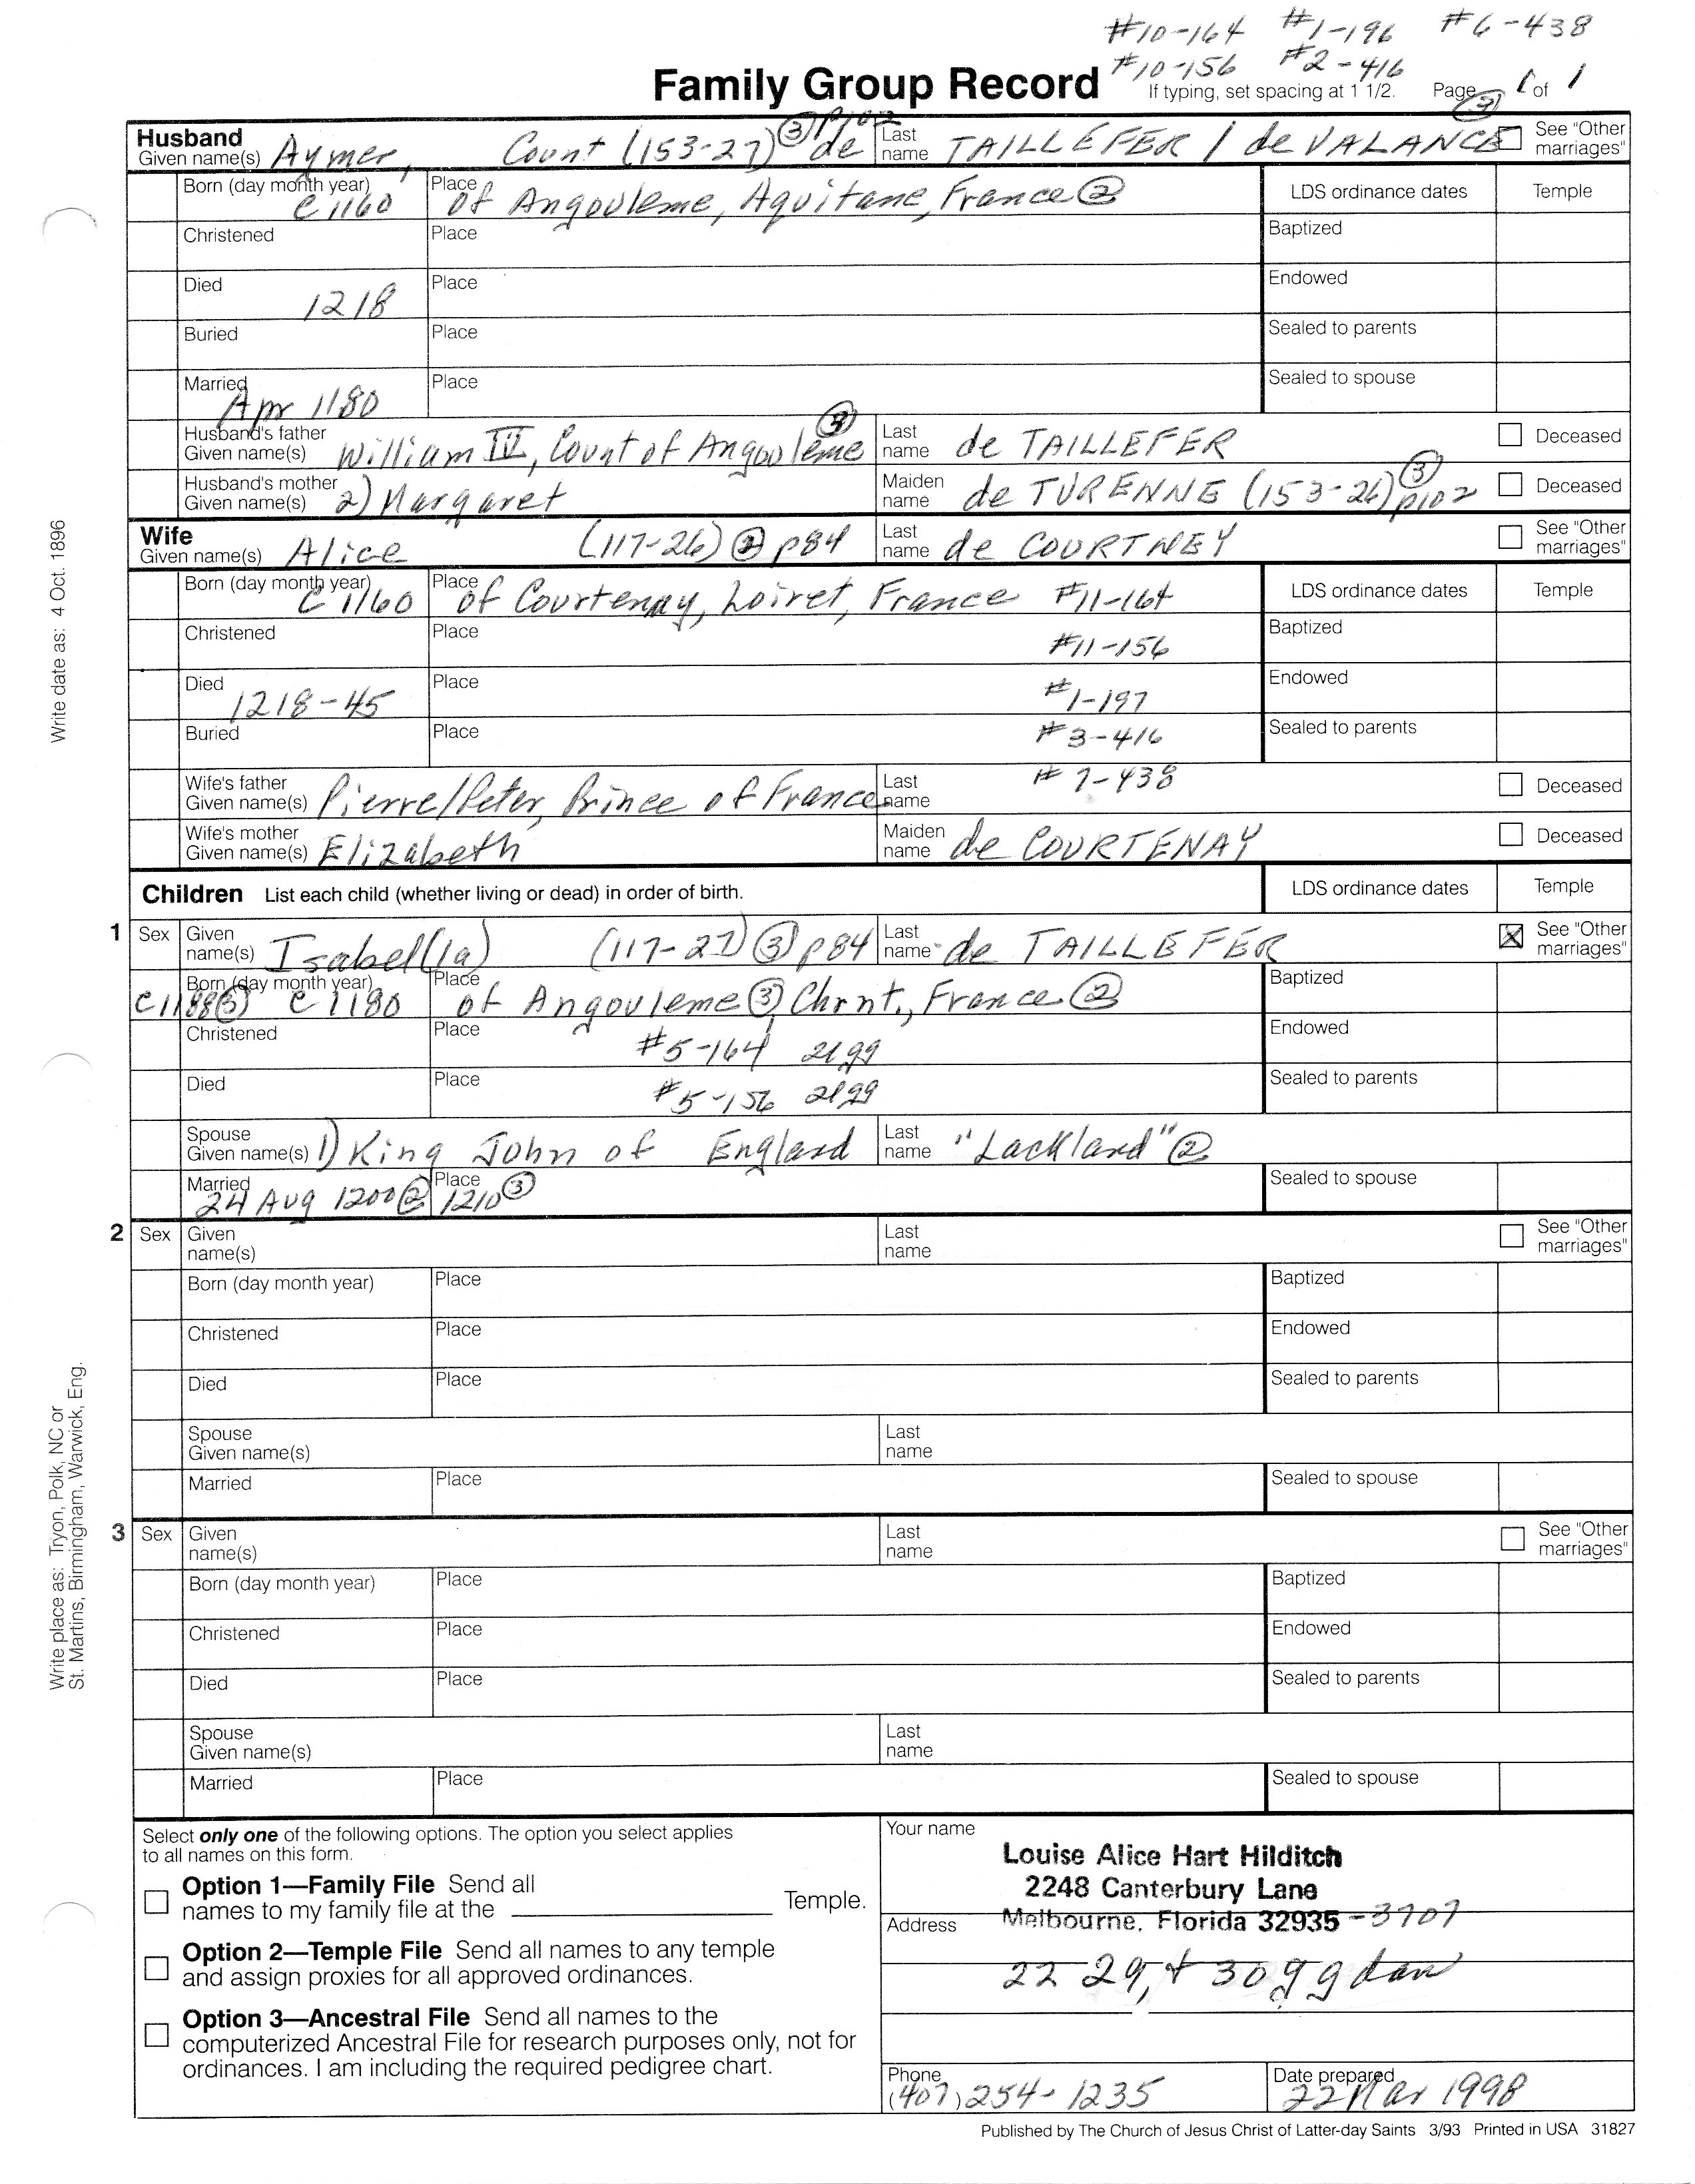 #10-164 #1-196 #6-438
#10-156 #2-416
Family Group Record If typing, set spacing at 1 1/2. Page 1 of 1
Husband Given name(s) Aymer, Count (153-27) ③ p102 de Last name TAILLEFER / de VALANCE ③ See "Other marriages"
Born (day month year) C 1160 Place of Angouleme, Aquitane, France ② LDS ordinance dates Temple
Christened Place Baptized
Died 1218 Place Endowed
Buried Place Sealed to parents
Married Apr 1180 Place Sealed to spouse
Husband's father Given name(s) William IV, Count of Angouleme ③ Last name de TAILLEFER Deceased
Husband's mother Given name(s) 2) Margaret Maiden name de TURENNE (153-26) ③ p102 Deceased
Wife Given name(s) Alice (117-26) ② p84 Last name de COURTNEY See "Other marriages"
Born (day month year) C 1160 Place of Courtenay, Loiret, France #11-164 LDS ordinance dates Temple
Christened Place #11-156 Baptized
Died 1218-45 Place #1-197 Endowed
Buried Place #3-416 Sealed to parents
Wife's father Given name(s) Pierre/Peter, Prince of France Last name #7-438 Deceased
Wife's mother Given name(s) Elizabeth Maiden name de COURTENAY Deceased
Children List each child (whether living or dead) in order of birth. LDS ordinance dates Temple
1 Sex Given name(s) Isabel(la) (117-27) ③ p84 Last name de TAILLEFER See "Other marriages"
Born (day month year) C1188③ C 1180 Place of Angouleme ③, Chrnt., France ② Baptized
Christened Place #5-164 21gg Endowed
Died Place #5-156 21gg Sealed to parents
Spouse Given name(s) 1) King John of England Last name "Lackland" ②
Married 24 Aug 1200② Place 1210③ Sealed to spouse
2 Sex Given name(s) Last name See "Other marriages"
Born (day month year) Place Baptized
Christened Place Endowed
Died Place Sealed to parents
Spouse Given name(s) Last name
Married Place Sealed to spouse
3 Sex Given name(s) Last name See "Other marriages"
Born (day month year) Place Baptized
Christened Place Endowed
Died Place Sealed to parents
Spouse Given name(s) Last name
Married Place Sealed to spouse
Select only one of the following options. The option you select applies
to all names on this form.
Option 1—Family File Send all
names to my family file at the Temple.
Option 2—Temple File Send all names to any temple
and assign proxies for all approved ordinances.
Option 3—Ancestral File Send all names to the
computerized Ancestral File for research purposes only, not for
ordinances. I am including the required pedigree chart.
Your name
Louise Alice Hart Hilditch
2248 Canterbury Lane
Address Melbourne, Florida 32935-3707
22 29, + 30 gg dau
Phone (407) 254-1235 Date prepared 22 Mar 1998
Published by The Church of Jesus Christ of Latter-day Saints 3/93 Printed in USA 31827
Write date as: 4 Oct. 1896
Write place as: Tryon, Polk, NC or
St. Martins, Birmingham, Warwick, Eng.